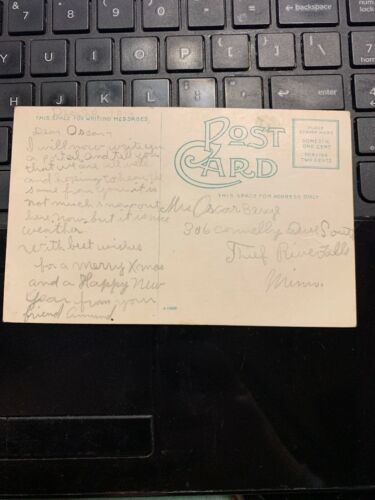 &
7
8
9
0
backspace
Y
U
I
O
P
{
[
}
]
|
\
G
H
J
K
L
:
;
"
'
enter
THIS SPACE FOR WRITING MESSAGES
POST CARD
PLACE
STAMP HERE
DOMESTIC
ONE CENT
FOREIGN
TWO CENTS
THIS SPACE FOR ADDRESS ONLY
Dear Oscar
I will now write you
a postal and tell you
that we are all well
and hoping to hear the
same from you it is
not much snow out
her now but it is nice
weather
with best wishes
for a merry Xmas
and a Happy New
Year from your
friend
Mr Oscar
306 Connelly Ave South
Thief River Falls
Minn.